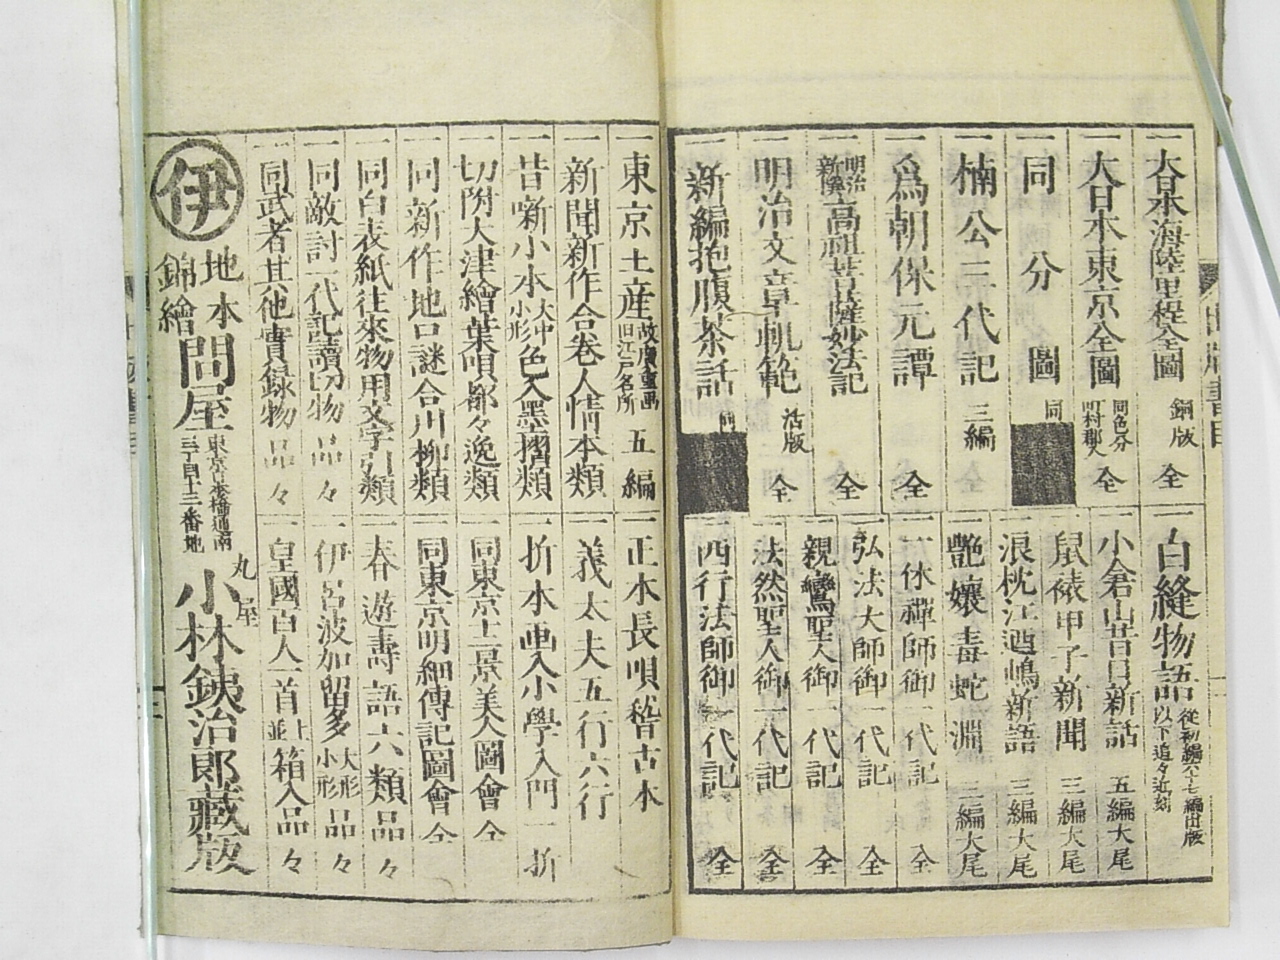 一大日本海陸里程全圖 銅版 全
一大日本東京全圖 同色分 町村郡入 全
一同分圖 同
一楠公三代記 三編 全
一爲朝保元譚 全
一明治新撰高祖菩薩妙法記 全
一明治文章軌範 活版 全
一新編抱腹茶話 同
一白縫物語 從初編六十七編出版 以下追々近刻
一小倉山昔日新話 五編大尾
一鼠裱甲子新聞 三編大尾
一浪枕江廼嶋新語 三編大尾
一艶孃毒蛇淵 三編大尾
一一休禪師御一代記 全
一弘法大師御一代記 全
一親鸞聖人御一代記 全
一法然聖人御一代記 全
一西行法師御一代記 全
一東京土産 故廣重画 旧江戸名所 五編
一新聞新作合巻人情本類
一昔噺小本 大中小形 色入墨摺類
一切附大津繪葉唄都々逸類
一同新作地口謎合川柳類
一同白表紙往來物用文字引類
一同敵討一代記讀切物 品々
一同武者其他實録物 品々
一正本長唄稽古本
一義太夫五行六行
一折本画入小學入門 一折
一同東京十二景美人圖會 全
一同東京明細傳記圖會 全
一春遊壽語六類品々
一伊呂波加留多 大形小形 品々
一皇國百人一首 上並 箱入品々
伊 地本錦繪問屋 東京日本橋通南三丁目十三番地
丸屋 小林鉄治郎藏版